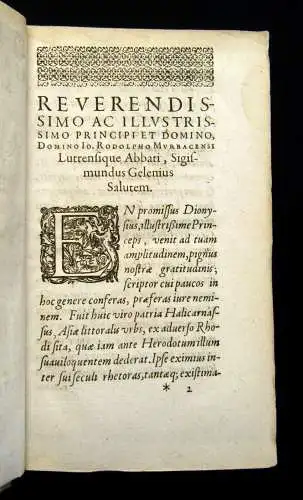 REVERENDIS-
SIMO AC ILLVSTRIS-
SIMO PRINCIPI ET DOMINO,
DOMINO IO. RODOLPHO MVRBACENSI
Lutrensique Abbati, Sigis-
mundus Gelenius
Salutem.
EN promissus Diony-
sius, illustrissime Prin-
ceps, venit ad tuam
amplitudinem, pignus
nostræ gratitudinis;
scriptor cui paucos in
hoc genere conferas, præferas iure nemi-
nem. Fuit huic viro patria Halicarnas-
sus, Asiæ littoralis vrbs, ex aduerso Rho-
di sita, quæ iam ante Herodotum illum
suauiloquentem dederat. Ipse eximius in-
ter sui seculi rhetoras, tantæq; existima-
* 2